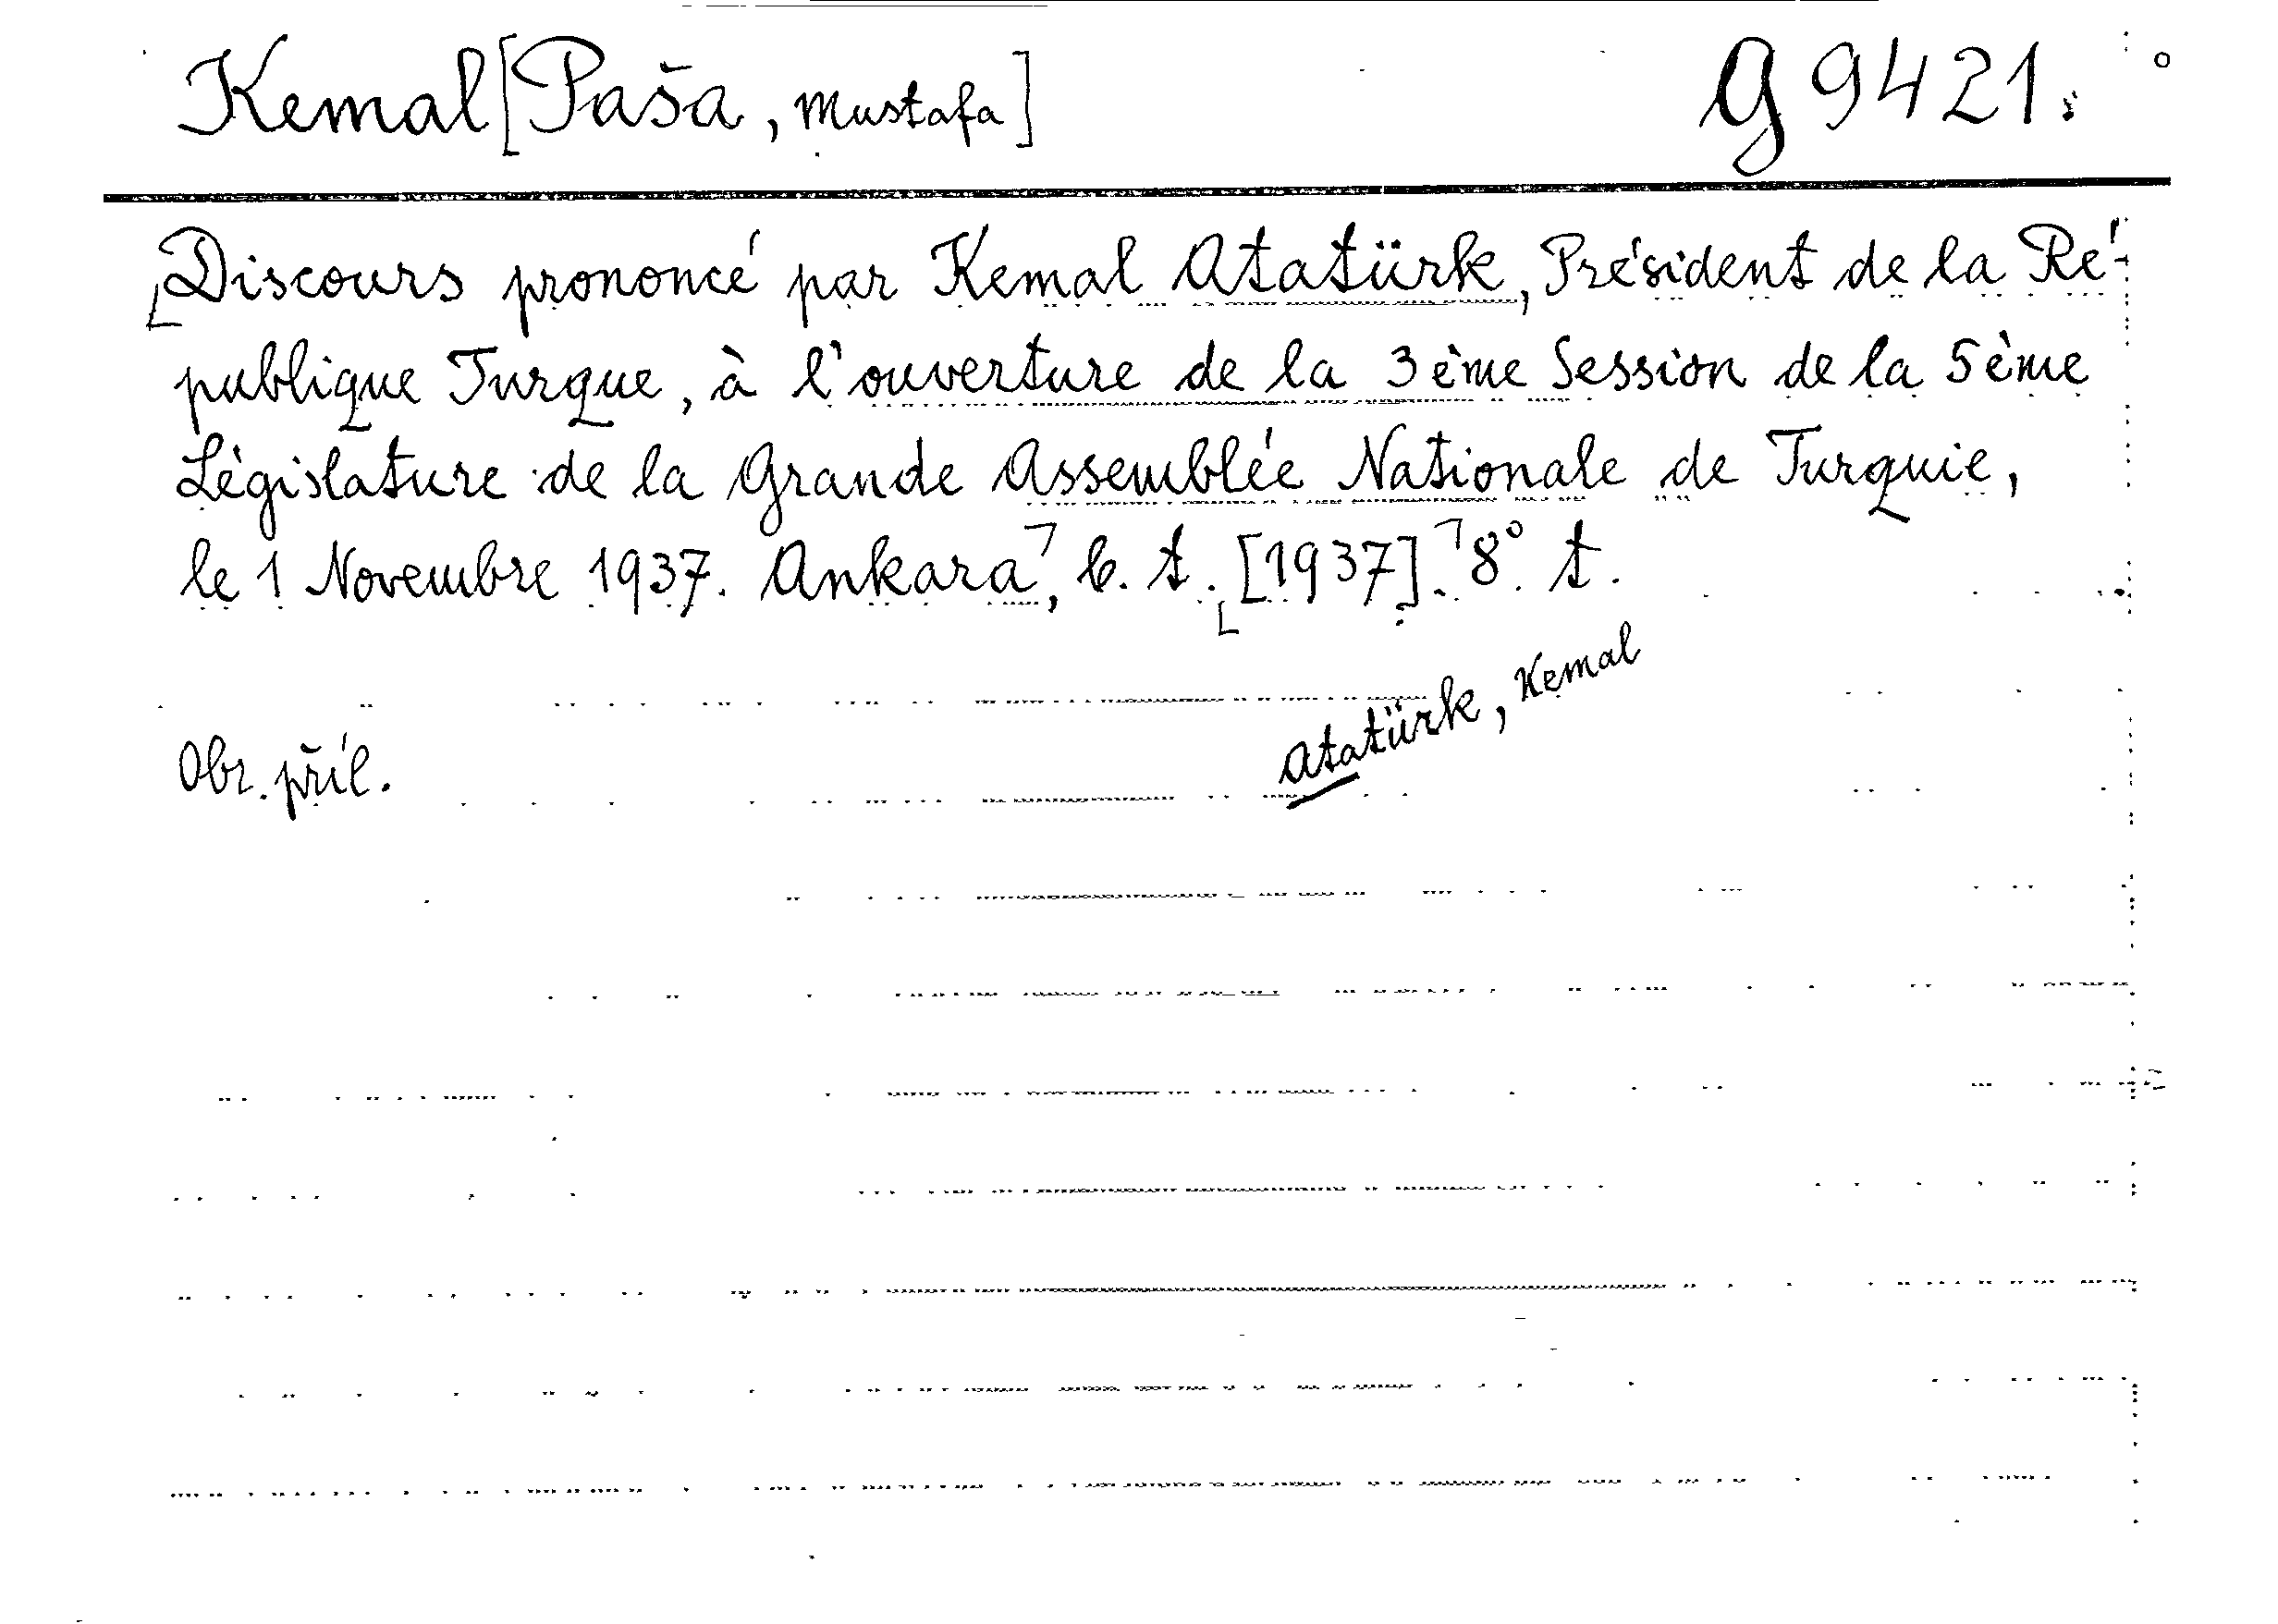 Kemal [Paša, Mustafa] G 9421.
Discours prononcé par Kemal Atatürk, Président de la Ré-
publique Turque, à l'ouverture de la 3ème Session de la 5ème
Législature de la Grande Assemblée Nationale de Turquie,
le 1 Novembre 1937. Ankara, b. t. [1937]. 8° t.
Atatürk, Kemal
Obr. příl.